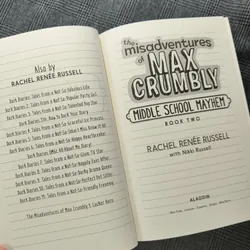 Also by
RACHEL RENÉE RUSSELL
Dork Diaries: Tales from a Not-So-Fabulous Life
Dork Diaries 2: Tales from a Not-So-Popular Party Girl
Dork Diaries 3: Tales from a Not-So-Talented Pop Star
Dork Diaries 3½: How to Dork Your Diary
Dork Diaries 4: Tales from a Not-So-Graceful Ice Princess
Dork Diaries 5: Tales from a Not-So-Smart Miss Know-It-All
Dork Diaries 6: Tales from a Not-So-Happy Heartbreaker
Dork Diaries OMG: All About Me Diary!
Dork Diaries 7: Tales from a Not-So-Glam TV Star
Dork Diaries 8: Tales from a Not-So-Happily Ever After
Dork Diaries 9: Tales from a Not-So-Dorky Drama Queen
Dork Diaries 10: Tales from a Not-So-Perfect Pet Sitter
Dork Diaries 11: Tales from a Not-So-Friendly Frenemy
The Misadventures of Max Crumbly 1: Locker Hero
the
misadventures
of MAX
CRUMBLY
MIDDLE SCHOOL MAYHEM
BOOK TWO
RACHEL RENÉE RUSSELL
with Nikki Russell
ALADDIN
New York London Toronto Sydney New Delhi